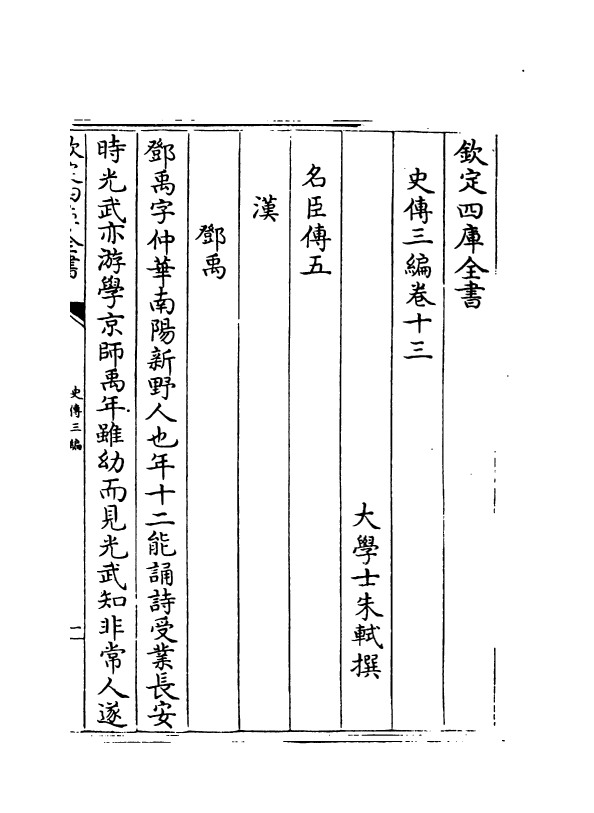 欽定四庫全書
史傳三編卷十三
大學士朱軾撰
名臣傳五
漢
鄧禹
鄧禹字仲華南陽新野人也年十二能誦詩受業長安
時光武亦游學京師禹年雖幼而見光武知非常人遂
欽定四庫全書
史傳三編
一